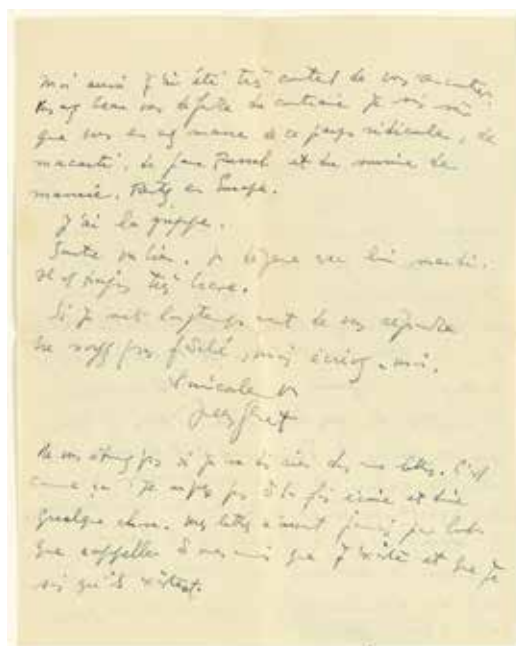 Moi aussi j'ai été très content de vous rencontrer.
Vous avez beau vous défendre du contraire je suis sûr
que vous en avez marre de ce pays ridicule, de
macarti, de Jane Russel et du
Partez en Europe.
J'ai la grippe.
Sartre va bien. Je déjeune avec lui mardi.
Il est toujours très brave.
Si je mets longtemps avant de vous répondre
ne soyez pas fâché, mais écrivez-moi.
Amicalement
Jean Genet
Ne vous étonnez pas si je ne dis rien dans mes lettres. C'est
comme ça. Je ne peux pas à la fois écrire et dire
quelque chose. Mes lettres n'auront jamais pour but
que rappeler à mes amis que j'existe et que je
sais qu'ils existent.